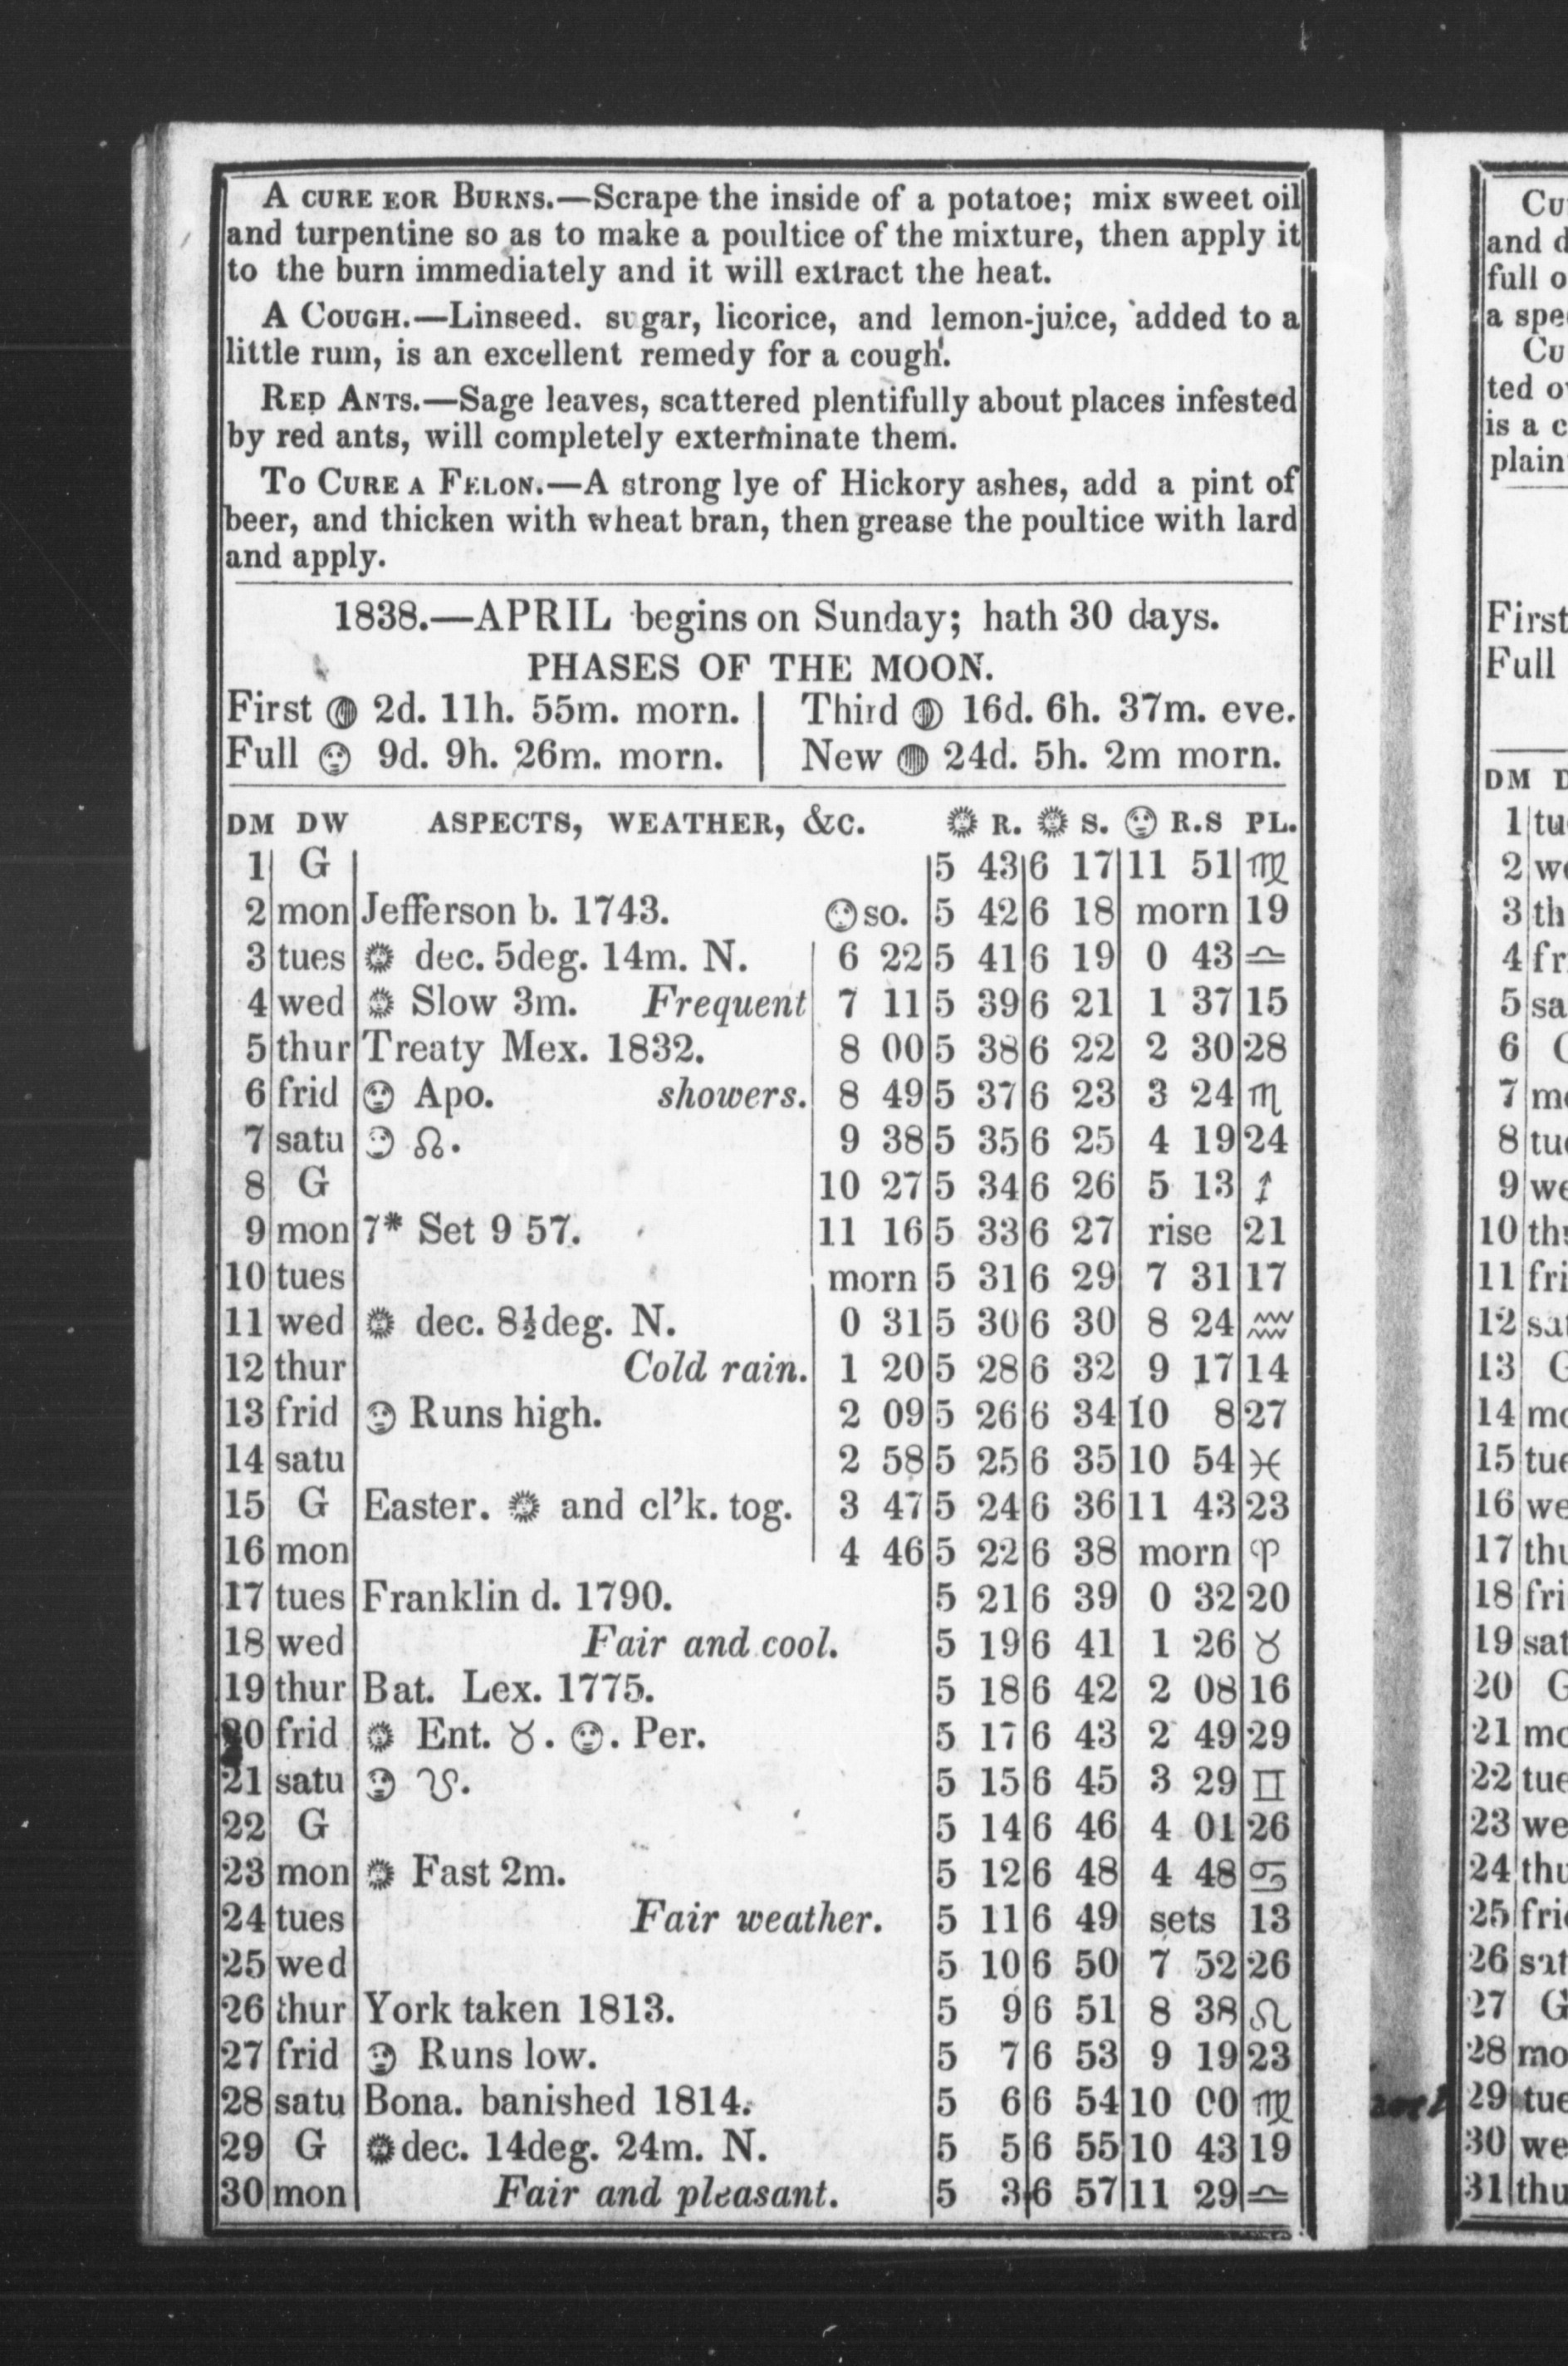 A CURE EOR BURNS.—Scrape the inside of a potatoe; mix sweet oil
and turpentine so as to make a poultice of the mixture, then apply it
to the burn immediately and it will extract the heat.
A COUGH.—Linseed. sugar, licorice, and lemon-juice, added to a
little rum, is an excellent remedy for a cough.
RED ANTS.—Sage leaves, scattered plentifully about places infested
by red ants, will completely exterminate them.
TO CURE A FELON.—A strong lye of Hickory ashes, add a pint of
beer, and thicken with wheat bran, then grease the poultice with lard
and apply.
1838.—APRIL begins on Sunday; hath 30 days.
PHASES OF THE MOON.
First 2d. 11h. 55m. morn. | Third 16d. 6h. 37m. eve.
Full 9d. 9h. 26m. morn. | New 24d. 5h. 2m morn.
DM DW ASPECTS, WEATHER, &C. ☀ R. ☀ S. R.S PL.
1 G 5 43 6 17 11 51 ♍
2 mon Jefferson b. 1743. so. 5 42 6 18 morn 19
3 tues ☀ dec. 5deg. 14m. N. 6 22 5 41 6 19 0 43 ♎
4 wed ☀ Slow 3m. Frequent 7 11 5 39 6 21 1 37 15
5 thur Treaty Mex. 1832. 8 00 5 38 6 22 2 30 28
6 frid Apo. showers. 8 49 5 37 6 23 3 24 ♏
7 satu ☊. 9 38 5 35 6 25 4 19 24
8 G 10 27 5 34 6 26 5 13 ♐
9 mon 7* Set 9 57. 11 16 5 33 6 27 rise 21
10 tues morn 5 31 6 29 7 31 17
11 wed ☀ dec. 8½deg. N. 0 31 5 30 6 30 8 24 ♒
12 thur Cold rain. 1 20 5 28 6 32 9 17 14
13 frid Runs high. 2 09 5 26 6 34 10 8 27
14 satu 2 58 5 25 6 35 10 54 ♓
15 G Easter. ☀ and cl'k. tog. 3 47 5 24 6 36 11 43 23
16 mon 4 46 5 22 6 38 morn ♈
17 tues Franklin d. 1790. 5 21 6 39 0 32 20
18 wed Fair and cool. 5 19 6 41 1 26 ♉
19 thur Bat. Lex. 1775. 5 18 6 42 2 08 16
20 frid ☀ Ent. ♉. Per. 5 17 6 43 2 49 29
21 satu ☋. 5 15 6 45 3 29 ♊
22 G 5 14 6 46 4 01 26
23 mon ☀ Fast 2m. 5 12 6 48 4 48 ♋
24 tues Fair weather. 5 11 6 49 sets 13
25 wed 5 10 6 50 7 52 26
26 thur York taken 1813. 5 9 6 51 8 38 ♌
27 frid Runs low. 5 7 6 53 9 19 23
28 satu Bona. banished 1814. 5 6 6 54 10 00 ♍
29 G ☀ dec. 14deg. 24m. N. 5 5 6 55 10 43 19
30 mon Fair and pleasant. 5 3 6 57 11 29 ♎
Cu
and d
full o
a spe
Cu
ted o
is a c
plain
First
Full
DM D
1 tu
2 we
3 th
4 fr
5 sa
6
7 mo
8 tu
9 we
10 th
11 fri
12 sat
13 G
14 mo
15 tue
16 we
17 thu
18 fri
19 sat
20 G
21 mo
22 tue
23 we
24 thu
25 fri
26 sat
27 G
28 mo
29 tue
30 we
31 thu